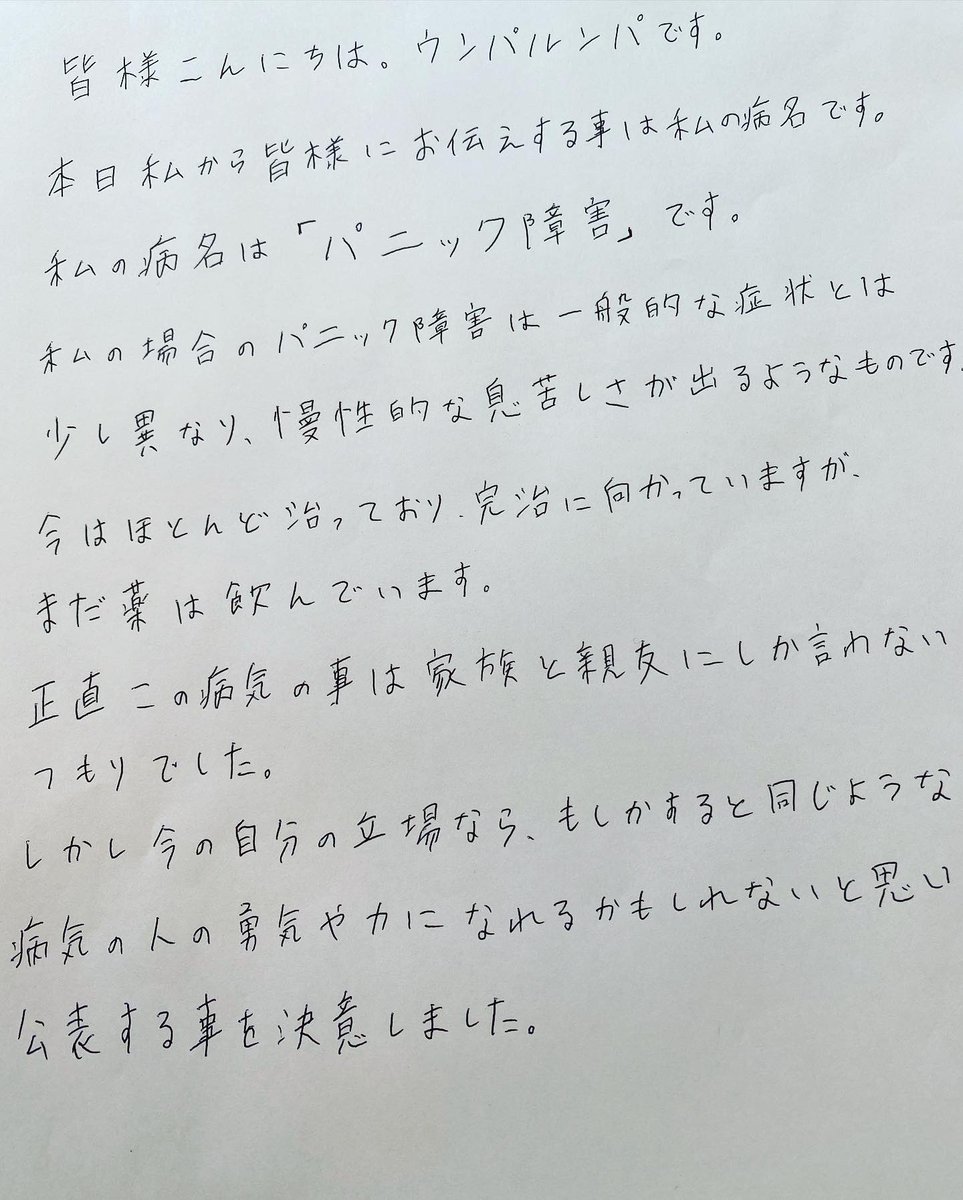 皆様こんにちは。ウンパルンパです。
本日私から皆様にお伝えする事は私の病名です。
私の病名は「パニック障害」です。
私の場合のパニック障害は一般的な症状とは
少し異なり、慢性的な息苦しさが出るようなものです。
今はほとんど治っており、完治に向かっていますが、
まだ薬は飲んでいます。
正直この病気の事は家族と親友にしか言わない
つもりでした。
しかし今の自分の立場なら、もしかすると同じような
病気の人の勇気や力になれるかもしれないと思い
公表する事を決意しました。